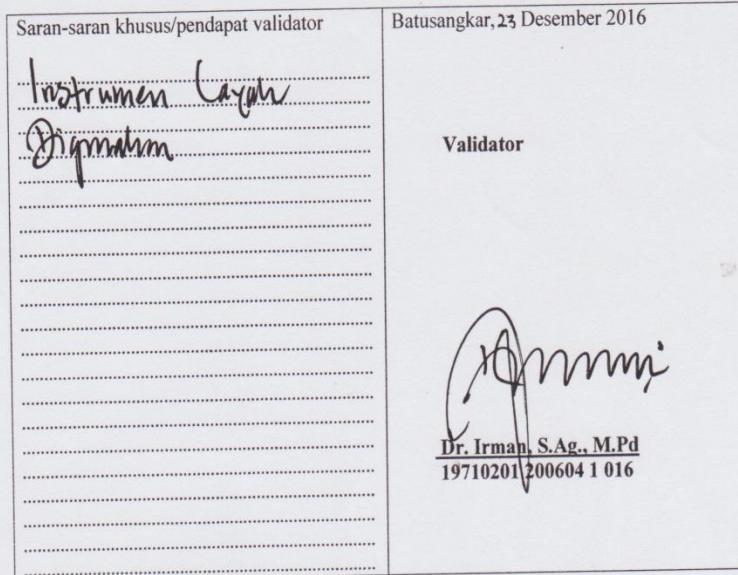 Saran-saran khusus/pendapat validator
Instrumen Layak
Digunakan
Batusangkar, 23 Desember 2016
Validator
Dr. Irman, S.Ag., M.Pd
19710201 200604 1 016